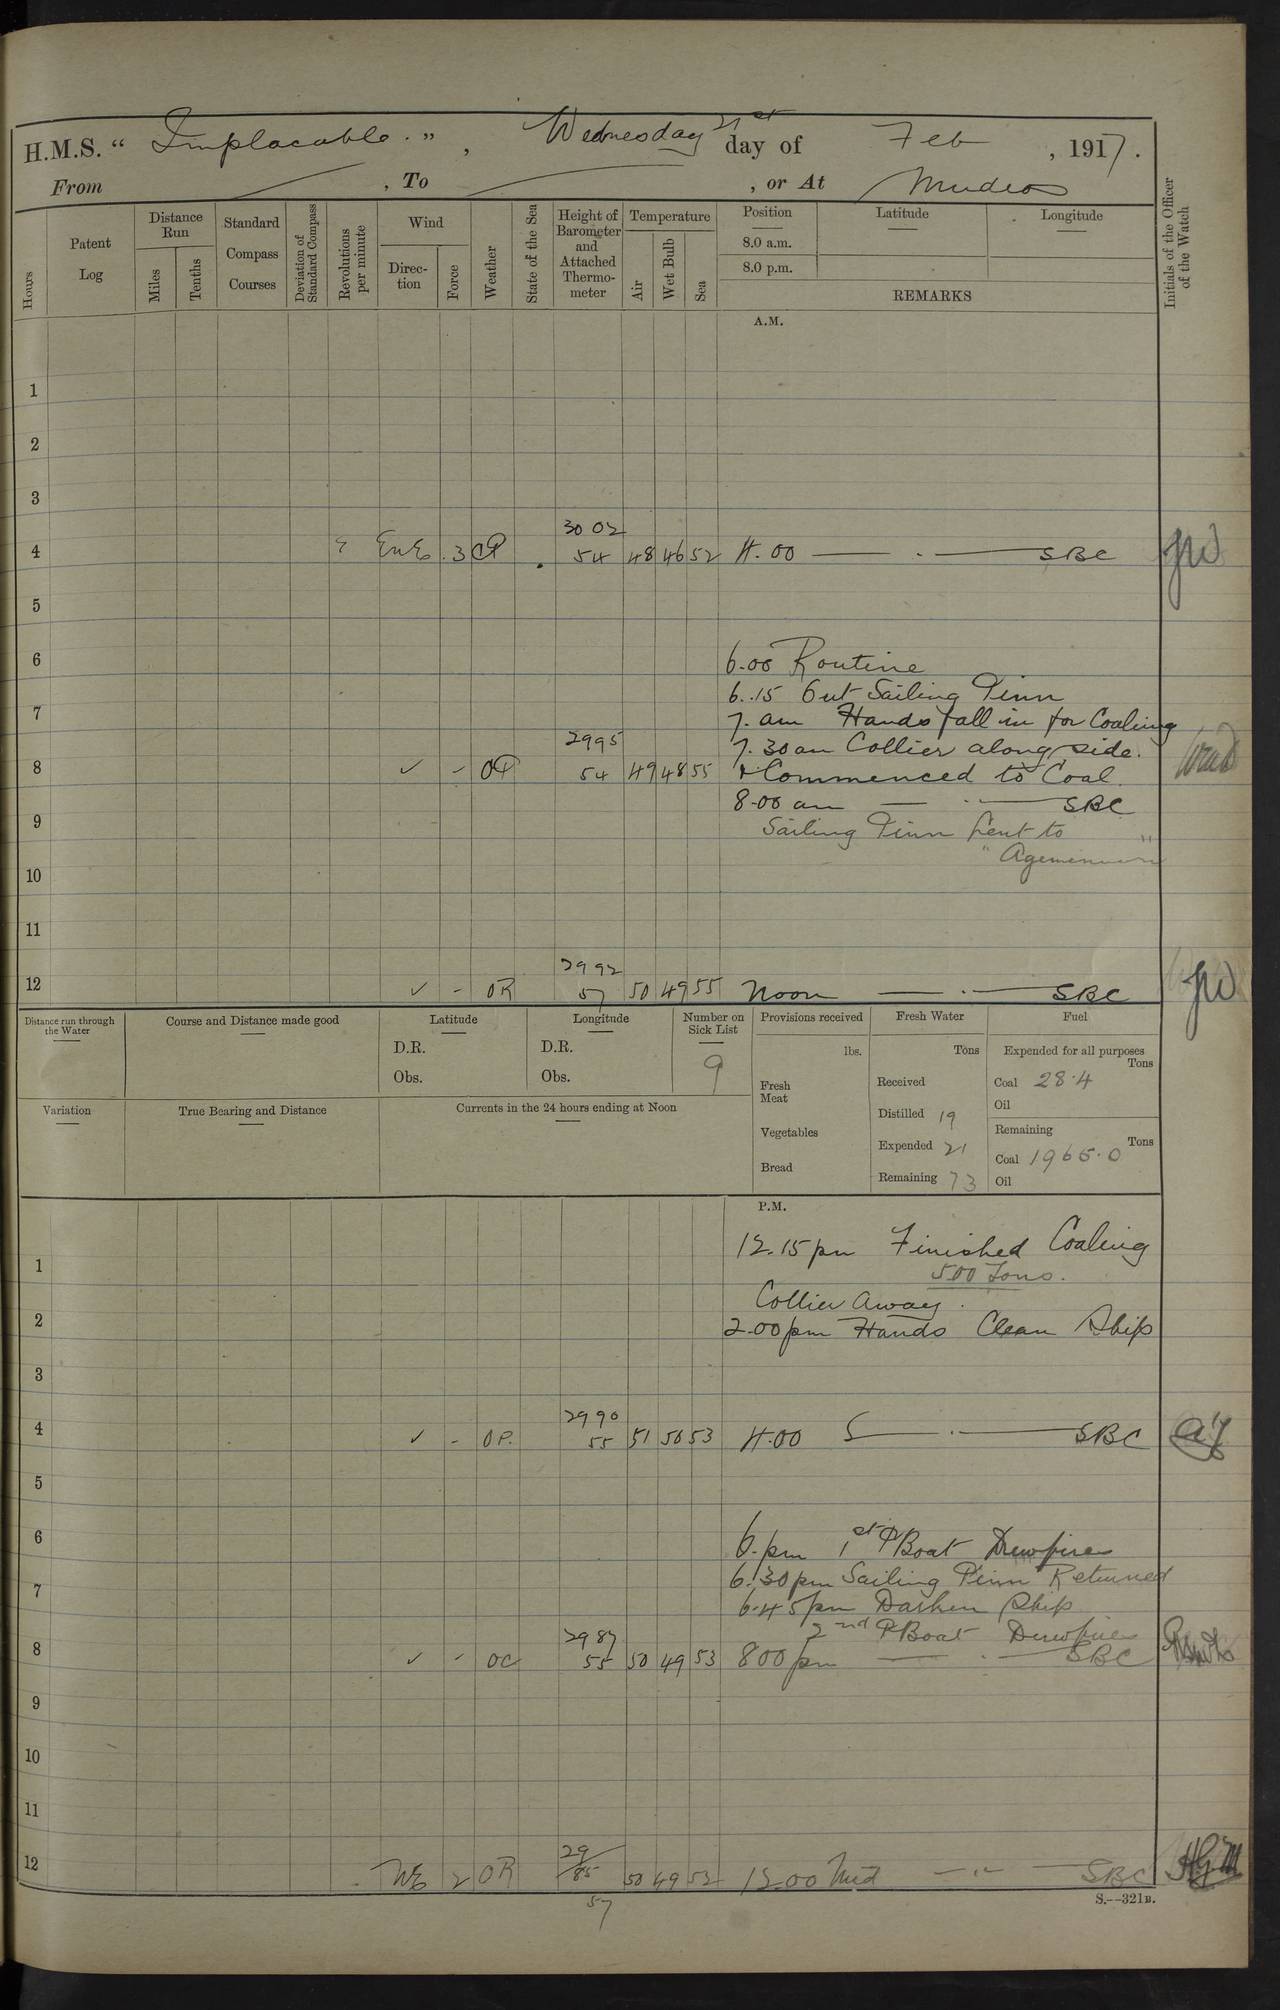 H.M.S. “ Implacable. ” , Wednesday 21st day of Feb , 1917.
From , To , or At Mudros
Hours
Patent Log
Distance Run
Miles
Tenths
Standard Compass Courses
Deviation of Standard Compass
Revolutions per minute
Wind
Direction
Force
Weather
State of the Sea
Height of Barometer and Attached Thermometer
Temperature
Air
Wet Bulb
Sea
Position
8.0 a.m.
8.0 p.m.
Latitude
Longitude
REMARKS
Initials of the Officer of the Watch
A.M.
1
2
3
30 02
4 ENE 3 54 48 46 52 4.00 SBC
5
6 6.00 Routine
6.15 Out Sailing Pinn
7 7. am Hands fall in for Coaling
2995 7.30 am Collier along side.
8 ✓ - 54 49 48 55 & Commenced to Coal.
8.00 am SBC
9 Sailing Pinn Sent to
" Agememnon "
10
11
2992
12 ✓ - OR 57 50 49 55 Noon SBC
Distance run through the Water
Course and Distance made good
Latitude
D.R.
Obs.
Longitude
D.R.
Obs.
Number on Sick List
9
Provisions received
lbs.
Fresh Meat
Vegetables
Bread
Fresh Water
Tons
Received
Distilled 19
Expended 21
Remaining 73
Fuel
Expended for all purposes
Tons
Coal 28.4
Oil
Remaining
Tons
Coal 1965.0
Oil
Variation
True Bearing and Distance
Currents in the 24 hours ending at Noon
P.M.
12.15 pm Finished Coaling
1 500 Tons.
Collier Away.
2 2.00 pm Hands Clean Ship
3
2990
4 ✓ - OP. 55 51 50 53 4.00 SBC
5
6 6. pm 1st PBoat Drew fires
7 6.30 pm Sailing Pinn Returned
6.45 pm Darken Ship
2987 2nd PBoat Drew fires
8 ✓ - OC 55 50 49 53 8.00 pm SBC
9
10
11
29
12 NE 2 OR 85 50 49 52 12.00 Mid SBC HGM
57
S.—321B.